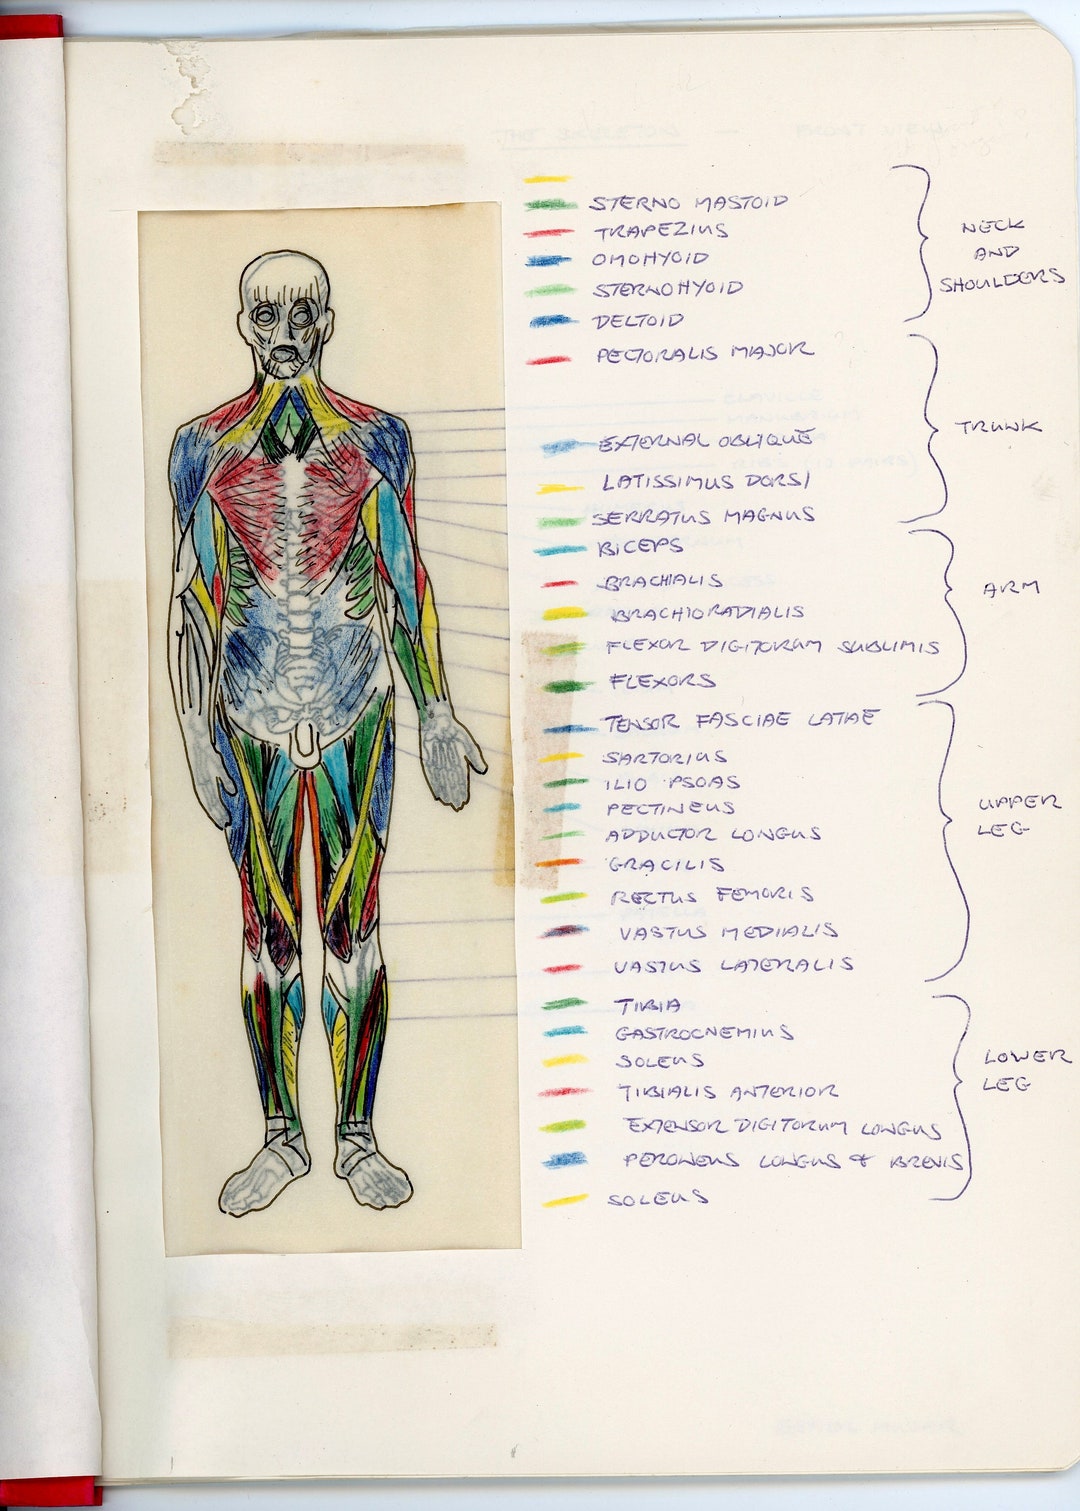 STERNO MASTOID
TRAPEZIUS
OMOHYOID
STERNOHYOID
DELTOID
NECK
AND
SHOULDERS
PECTORALIS MAJOR
EXTERNAL OBLIQUE
LATISSIMUS DORSI
SERRATUS MAGNUS
TRUNK
BICEPS
BRACHIALIS
BRACHIORADIALIS
FLEXOR DIGITORUM SUBLIMIS
FLEXORS
ARM
TENSOR FASCIAE LATAE
SARTORIUS
ILIO PSOAS
PECTINEUS
ADDUCTOR LONGUS
GRACILIS
RECTUS FEMORIS
VASTUS MEDIALIS
VASTUS LATERALIS
UPPER
LEG
TIBIA
GASTROCNEMIUS
SOLEUS
TIBIALIS ANTERIOR
EXTENSOR DIGITORUM LONGUS
PERONEUS LONGUS & BREVIS
SOLEUS
LOWER
LEG